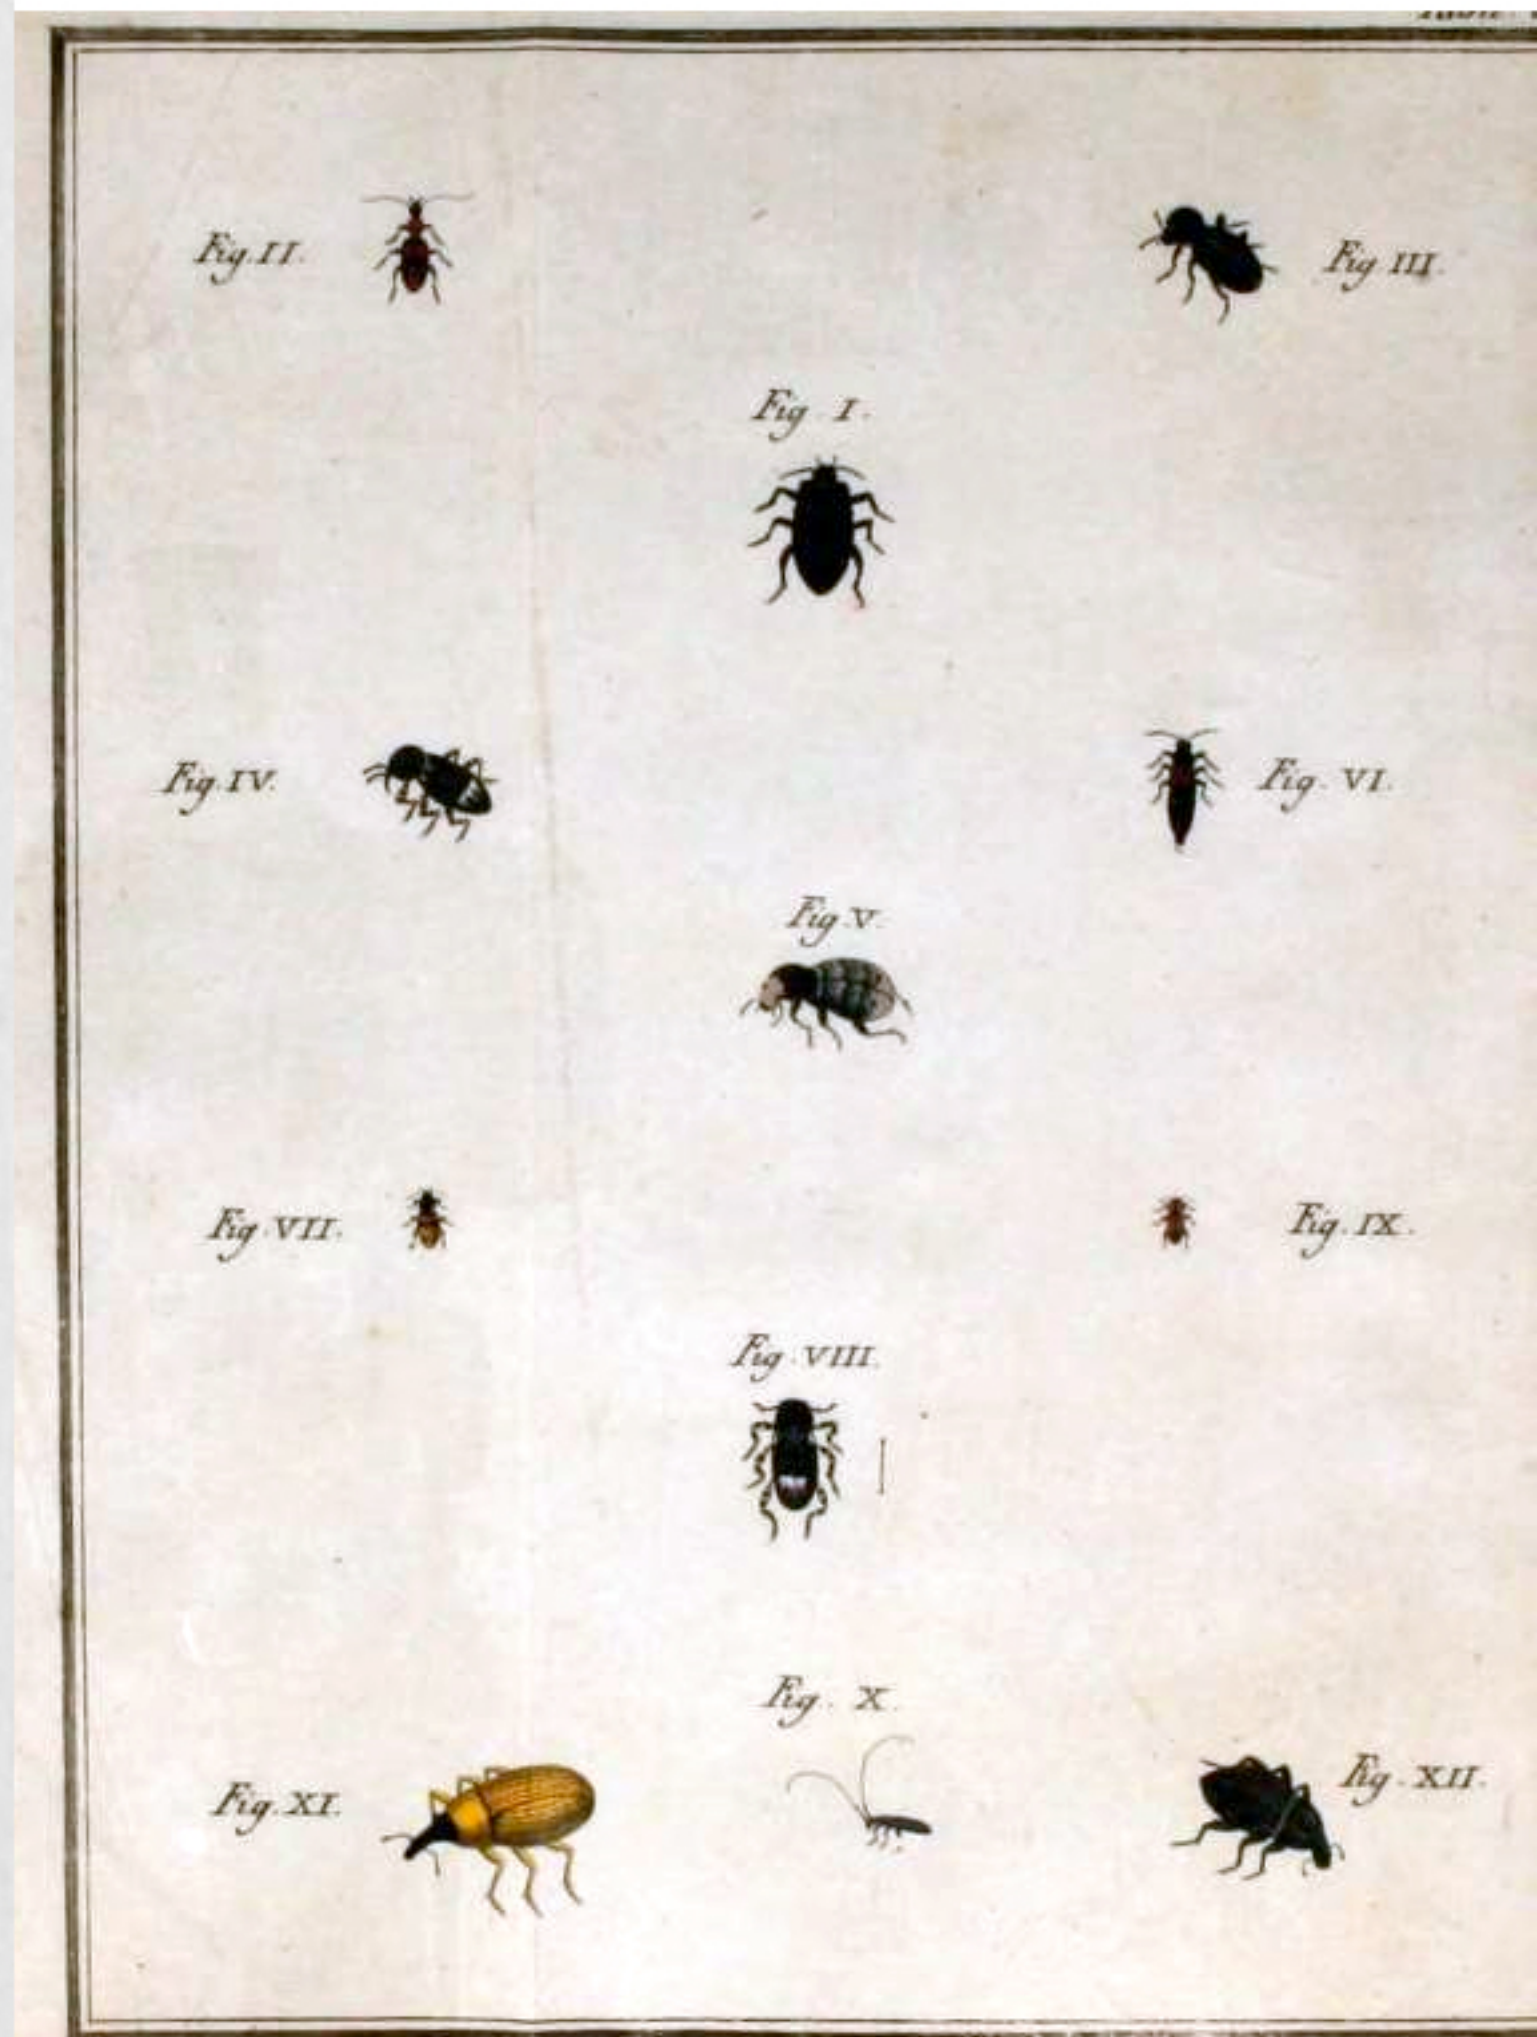 Fig. II.
Fig. III.
Fig. I.
Fig. IV.
Fig. VI.
Fig. V.
Fig. VII.
Fig. IX.
Fig. VIII.
Fig. X.
Fig. XI.
Fig. XII.